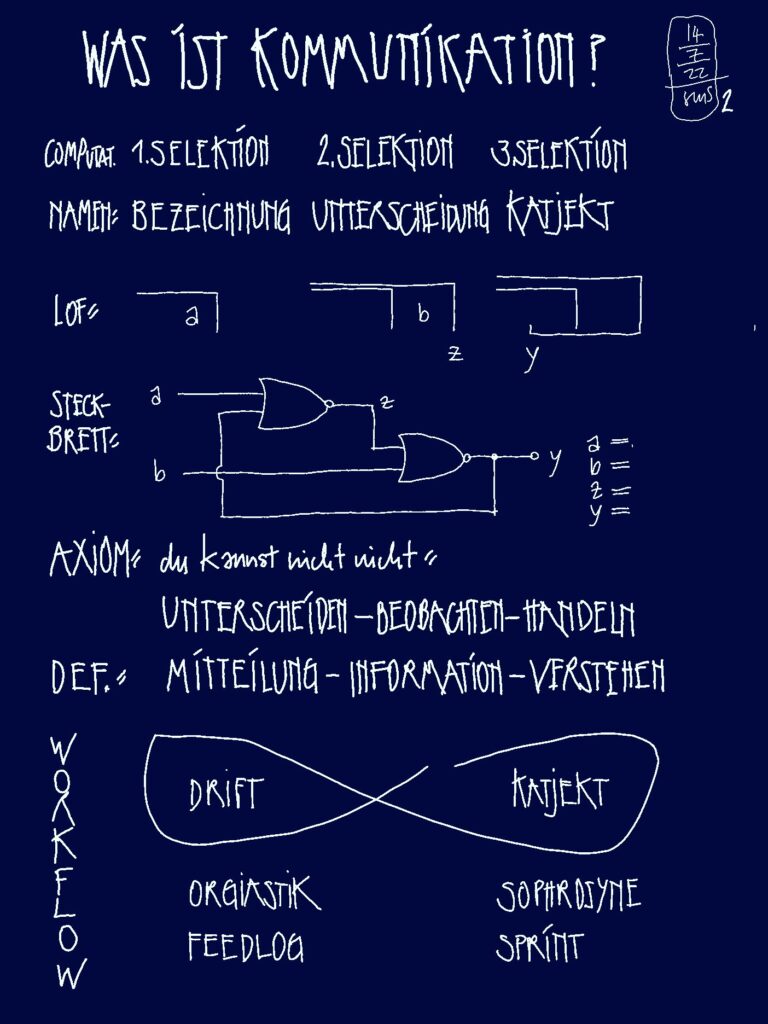 WAS IST KOMMUNIKATION?
14
7
22
sms 2
COMPUTAT. 1.SELEKTION 2.SELEKTION 3.SELEKTION
NAMEN= BEZEICHNUNG UNTERSCHEIDUNG KATJEKT
LOF= a b
z y
a z
STECK-
BRETT=
b y
a =
b =
z =
y =
AXIOM= du kannst nicht nicht =
UNTERSCHEIDEN-BEOBACHTEN-HANDELN
DEF.= MITTEILUNG-INFORMATION-VERSTEHEN
WORKFLOW
DRIFT KATJEKT
ORGIASTIK SOPHROSYNE
FEEDLOG SPRINT